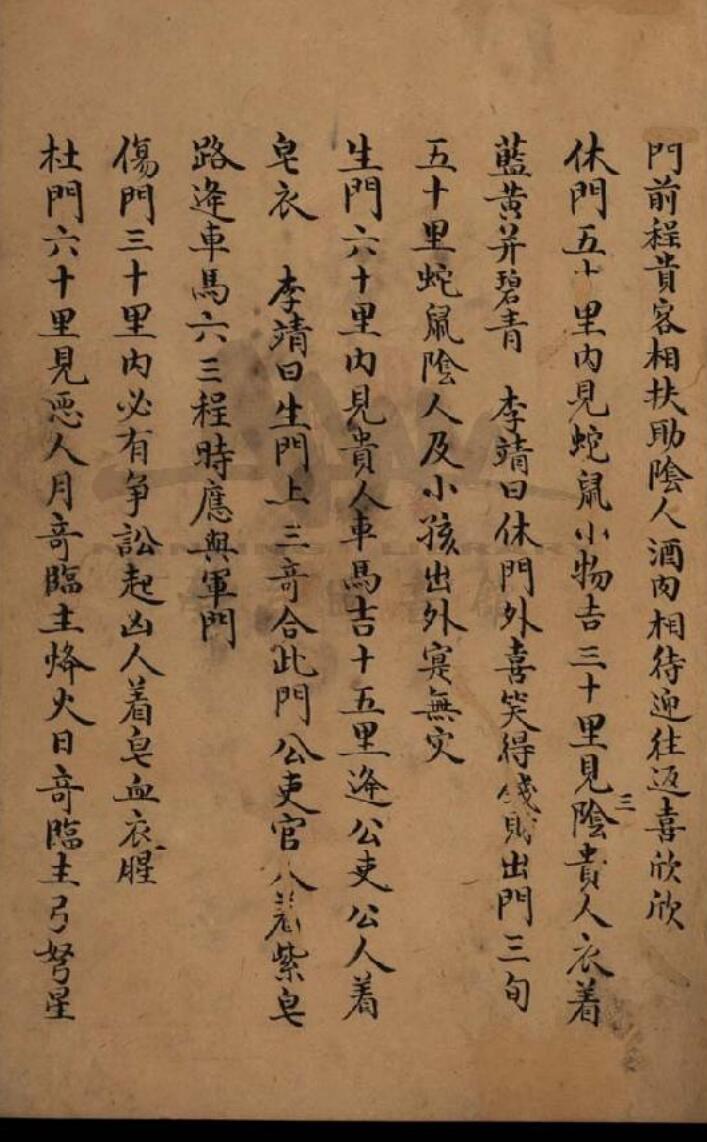 門前程貴客相扶助陰人酒肉相待迎往返喜欣欣
休門五十里内見蛇鼠小物吉三十里見陰貴人衣着
三
藍黄并碧青　李靖曰休門外喜笑得錢財出門三旬
五十里蛇鼠陰人及小孩出外寔無灾
生門六十里内見貴人車馬吉十五里逢公吏公人着
皂衣　李靖曰生門上三竒合此門公吏官人着紫皂
路逢車馬六三程時應與軍門
傷門三十里内必有争訟起凶人着皂血衣腥
杜門六十里見惡人月竒臨主烽火日竒臨主弓弩星